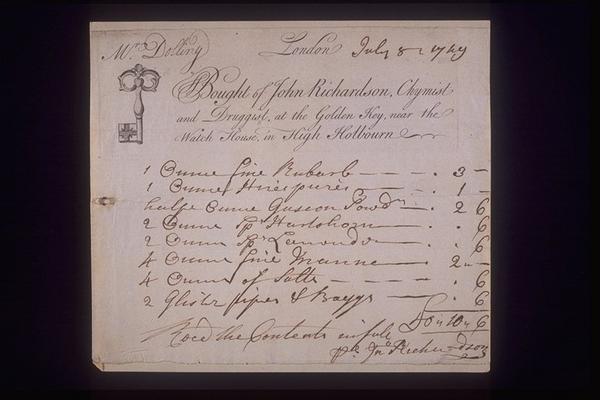 Mr. Dolling London July 8 1749
Bought of John Richardson, Chymist
and Druggist, at the Golden Key, near the
Watch House, in High Holbourn
1 Ounce fine Rubarb — — — . 3 —
1 Ounce — — . 1 —
halfe Ounce Gascon Powdr — . 2 6
2 Ounce Spt Hartshorn — . . 6
2 Ounce Spt Lavendr — . 6
4 Ounce fine Manna — . 2 " —
4 Ounce of Salts — — — — . 6
2 Glister pipes & Baggs — . 6
£0 " 10 " 6
Recd the Contents in full
pr Jno Richardson